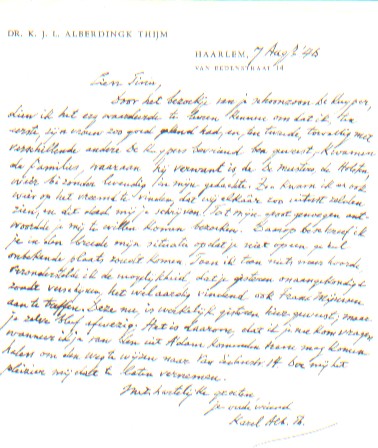 DR. K. J. L. ALBERDINGK THIJM
HAARLEM, 7 Aug. '48
VAN EEDENSTRAAT 14
Zeer
Door het bezoekje van je schoonzoon De Kuyper,
dien ik het zeer waardeerde te leeren kennen omdat ik ten
eerste, zijn vrouw zoo goed gekend had, en, ten tweede, toevallig met
verschillende andere De Kuypers bevriend ben geweest, kwamen
de families, waaraan hij verwant is,
weer bizonder levendig in mijn gedachte. Zoo kwam ik er ook
weer op het vreemd te vinden, dat wij elkaar zoo uiterst zelden
zien, en dit deed mij je schrijven. Tot mijn groot genoegen ant-
woordde je mij te willen komen bezoeken. Daarop beschreef ik
je in den breede mijn situatie opdat je niet op een je
onbekende plaats zoudt komen. Toen ik toen niets meer hoorde
veronderstelde ik de mogelijkheid, dat je gisteren onaangekondigd
zoudt verschijnen, het wel aardig vindend ook
aan te treffen. Deze nu, is werkelijk gisteren hier geweest, maar
je zelve bleef afwezig. Het is daarom, dat ik je nu kom vragen
wanneer ik je van den uit A'dam komenden trein mag komen
halen om den weg te wijzen naar Van Eedenstr. 14. Doe mij het
pleizier mij dat te laten vernemen.
Met hartelijke groeten,
je oude vriend
Karel Alb. Th.